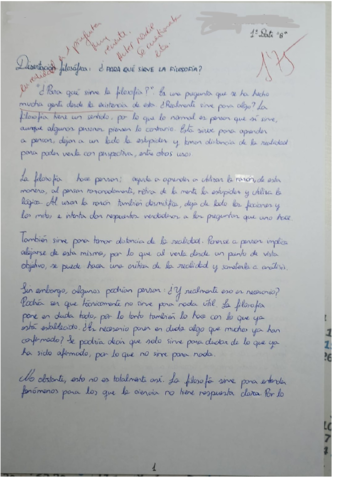 1º Bach "B"
Disertación filosófica: ¿PARA QUÉ SIRVE LA FILOSOFÍA?
"¿Para qué sirve la filosofía?" Es una pregunta que se ha hecho
mucha gente desde la existencia de esta. ¿Realmente sirve para algo? La
filosofía tiene un sentido, por lo que lo normal es pensar que sí sirve,
aunque algunas personas piensen lo contrario. Esta sirve para aprender
a pensar, dejar a un lado la estupidez y tomar distancia de la realidad
para poder verla con perspectiva, entre otros usos.
La filosofía hace pensar; ayuda a aprender a utilizar la razón de esta
manera, al pensar razonadamente, retira de la mente la estupidez y utiliza la
lógica. Al usar la razón también desmitifica, deja de lado las ficciones y
los mitos e intenta dar respuestas verdaderas a las preguntas que uno hace.
También sirve para tomar distancia de la realidad. Ponerse a pensar implica
alejarse de esta misma, por lo que al verla desde un punto de vista
objetivo, se puede hacer una crítica de la realidad y someterla a análisis.
Sin embargo, algunos podrían pensar: ¿Y realmente eso es necesario?
Podría ser que técnicamente no sirve para nada útil. La filosofía
pone en duda todo, por lo tanto también lo hace con lo que ya
está establecido. ¿Es necesario poner en duda algo que mucho ya han
confirmado? Se podría decir que solo sirve para dudar de lo que ya
ha sido afirmado, por lo que no sirve para nada.
No obstante, esto no es totalmente así. La filosofía sirve para entender
fenómenos para los que la ciencia no tiene respuesta clara. Por lo
1